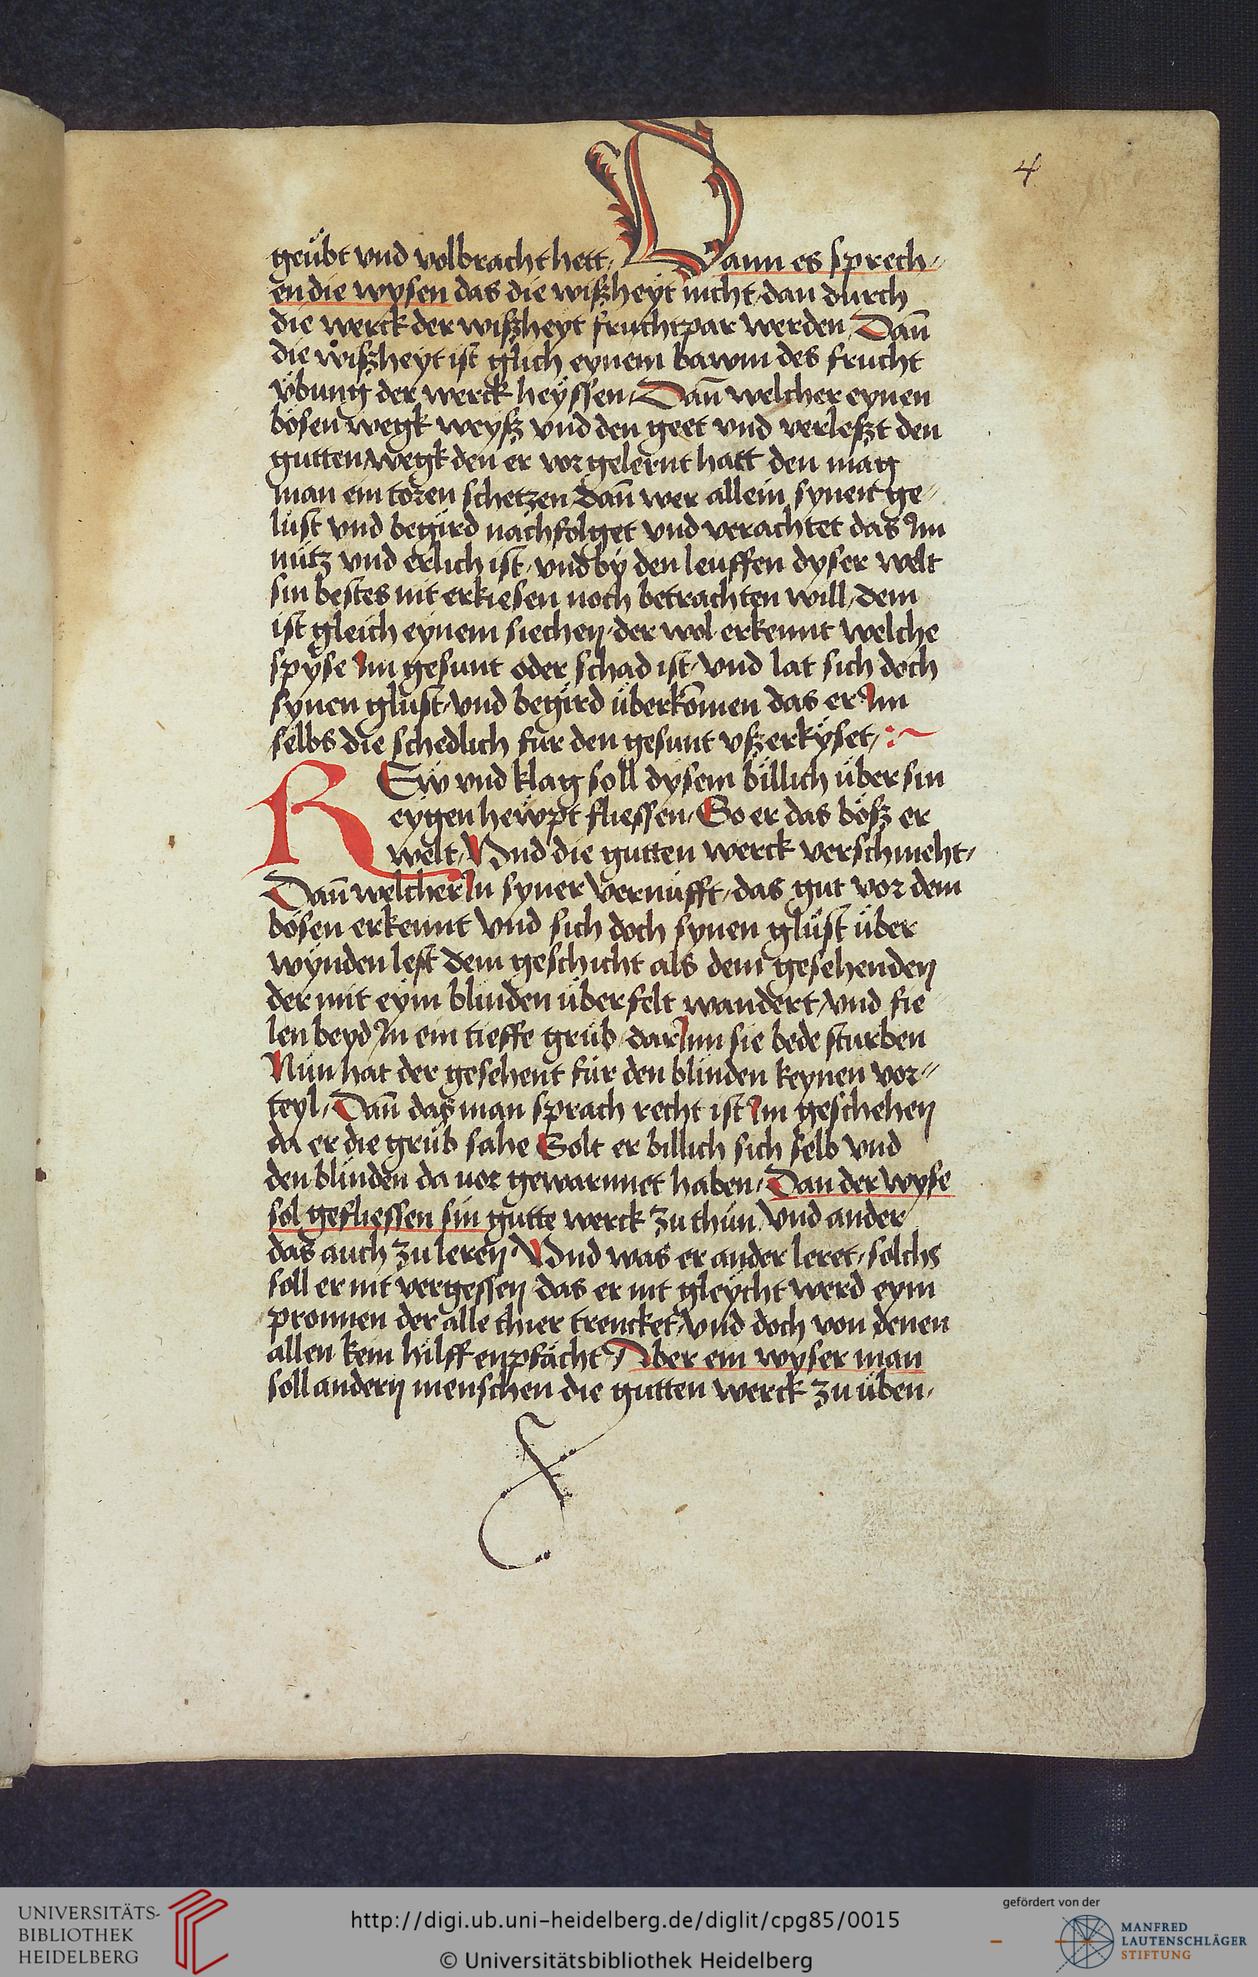 4
geübt vnd volbracht hett, Dann es sprech-
en die wysen das die wißheyt nicht dan durch
die werck der wißheyt fruchtpar werden Dañ
die wißheyt ist glich eynem bawm des frucht
übung der werck heyssen, Dañ welcher eynen
bösen wegk weyß vnd den geet vnd verleßt den
gutten wegk den er vor gelernt hatt den mag
man ein toren schetzen Dañ wer allein synen ge-
lüst vnd begird nachfolget vnd verachtet das Im
nütz vnd erlich ist, vnd by den leuffen dyser welt
sin bestes nit erkiesen noch betrachten will, dem
ist gleich eynem siechen der wol erkennt welche
spyse Im gesunt oder schad ist, vnd lat sich doch
synen glust, vnd begird überkōmen das er Im
selbs die schedlich für den gesunt vßerkÿset, :~
REw vnd klag soll dysem billich über sin
eygen hewpt fliessen, So er das böß er
welt, Vnd die gutten werck verschmeht,
Dañ welcher In syner vernüfft, das gut vor dem
bösen erkennt vnd sich doch synen glüst über
wynden lest dem geschicht als dem gesehenden
der mit eym blinden über felt wandert, vnd fie
len beyd In ein tieffe grüb, dar Inn sie bede sturben
Nün hat der gesehent für den blinden keynen vor-
teyl, Dañ das man sprach recht ist Im geschehen
da er die grüb sahe Solt er billich sich selb vnd
den blinden da uor gewarnnet haben, Dan der wyse
sol gefliessen sin gutte werck zu thün, Vnd ander
das auch zu leren Vnd was er ander leret, solchs
soll er nit vergessen das er nit gleycht werd eym
pronnen der alle thier trencket, vnd doch von denen
allen kein hilff enpfächt, Aber ein wyser man
soll andern menschen die gutten werck zu üben,
UNIVERSITÄTS-
BIBLIOTHEK
HEIDELBERG
http://digi.ub.uni-heidelberg.de/diglit/cpg85/0015
© Universitätsbibliothek Heidelberg
gefördert von der
MANFRED
LAUTENSCHLÄGER
STIFTUNG